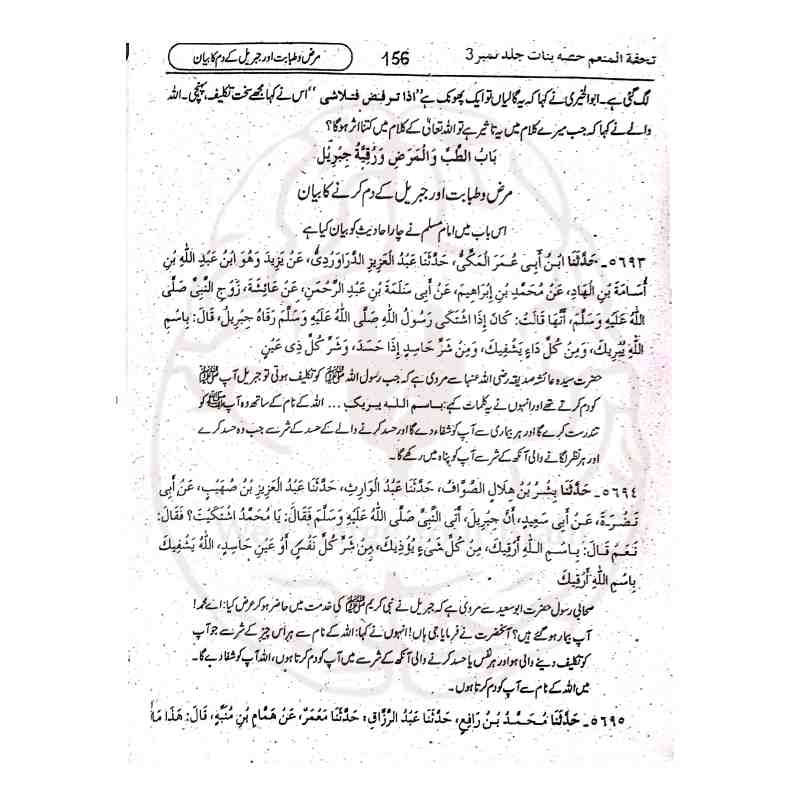 تحفة المنعم حصه بنات جلد نمبر 3 156 مرض وطبابت اور جبریل کے دم کا بیان
لگ گئی ہے۔ ابوالخیری نے کہا کہ یہ گالیاں تو ایک پھونک ہے "اذا ترفیض فتلاشی" اس نے کہا مجھے سخت تکلیف پہنچی۔ اللہ
والے نے کہا کہ جب میرے کلام میں یہ تاثیر ہے تو اللہ تعالیٰ کے کلام میں کتنا اثر ہوگا؟
بَابُ الطِّبِّ وَالْمَرَضِ وَرُقْيَةُ جِبْرِيْل
مرض وطبابت اور جبریل کے دم کرنے کا بیان
اس باب میں امام مسلم نے چار احادیث کو بیان کیا ہے
٥٦٩٣۔ حَدَّثَنَا ابْنُ أَبِى عُمَرَ الْمَكِّىُّ، حَدَّثَنَا عَبْدُ الْعَزِيزِ الدَّرَاوَرْدِىُّ، عَنْ يَزِيدَ وَهُوَ ابْنُ عَبْدِ اللَّهِ بْنِ
أُسَامَةَ بْنِ الْهَادِ، عَنْ مُحَمَّدِ بْنِ إِبْرَاهِيمَ، عَنْ أَبِى سَلَمَةَ بْنِ عَبْدِ الرَّحْمَنِ، عَنْ عَائِشَةَ، زَوْجِ النَّبِىِّ صَلَّى
اللَّهُ عَلَيْهِ وَسَلَّمَ، أَنَّهَا قَالَتْ: كَانَ إِذَا اشْتَكَى رَسُولُ اللَّهِ صَلَّى اللَّهُ عَلَيْهِ وَسَلَّمَ رَقَاهُ جِبْرِيلُ، قَالَ: بِاسْمِ
اللَّهِ يُبْرِيكَ، وَمِنْ كُلِّ دَاءٍ يَشْفِيكَ، وَمِنْ شَرِّ حَاسِدٍ إِذَا حَسَدَ، وَشَرِّ كُلِّ ذِى عَيْنٍ
حضرت سیدہ عائشہ صدیقہ رضی اللہ عنہا سے مروی ہے کہ جب رسول اللہ ﷺ کو تکلیف ہوتی تو جبریل آپ ﷺ
کو دم کرتے تھے اور انہوں نے یہ کلمات کہے: باسم الله يبريك ... اللہ کے نام کے ساتھ وہ آپ ﷺ کو
تندرست کرے گا اور ہر بیماری سے آپ کو شفاء دے گا اور حسد کرنے والے کے حسد کے شر سے جب وہ حسد کرے
اور ہر نظر لگانے والی آنکھ کے شر سے آپ کو پناہ میں رکھے گا۔
٥٦٩٤۔ حَدَّثَنَا بِشْرُ بْنُ هِلَالٍ الصَّوَّافُ، حَدَّثَنَا عَبْدُ الْوَارِثِ، حَدَّثَنَا عَبْدُ الْعَزِيزِ بْنُ صُهَيْبٍ، عَنْ أَبِى
نَضْرَةَ، عَنْ أَبِى سَعِيدٍ، أَنَّ جِبْرِيلَ، أَتَى النَّبِىَّ صَلَّى اللَّهُ عَلَيْهِ وَسَلَّمَ فَقَالَ: يَا مُحَمَّدُ اشْتَكَيْتَ؟ فَقَالَ:
نَعَمْ قَالَ: بِاسْمِ اللَّهِ أَرْقِيكَ، مِنْ كُلِّ شَىْءٍ يُؤْذِيكَ، مِنْ شَرِّ كُلِّ نَفْسٍ أَوْ عَيْنِ حَاسِدٍ، اللَّهُ يَشْفِيكَ
بِاسْمِ اللَّهِ أَرْقِيكَ
صحابی رسول حضرت ابوسعید سے مروی ہے کہ جبریل نے نبی کریم ﷺ کی خدمت میں حاضر ہو کر عرض کیا: اے محمد!
آپ بیمار ہو گئے ہیں؟ آنحضرت نے فرمایا جی ہاں! انہوں نے کہا: اللہ کے نام سے ہر اس چیز کے شر سے جو آپ
کو تکلیف دینے والی ہو اور ہر نفس یا حسد کرنے والی آنکھ کے شر سے میں آپ کو دم کرتا ہوں، اللہ آپ کو شفا دے گا۔
میں اللہ کے نام سے آپ کو دم کرتا ہوں۔
٥٦٩٥۔ حَدَّثَنَا مُحَمَّدُ بْنُ رَافِعٍ، حَدَّثَنَا عَبْدُ الرَّزَّاقِ، حَدَّثَنَا مَعْمَرٌ، عَنْ هَمَّامِ بْنِ مُنَبِّهٍ، قَالَ: هَذَا مَا